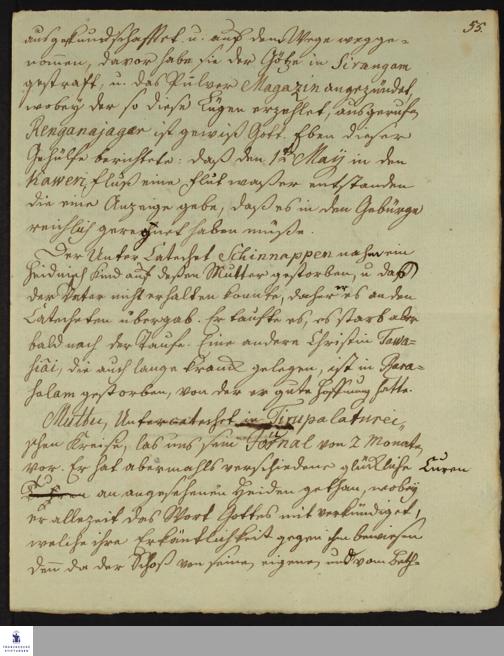 55.
ausgekundschafftet u. auf dem Wege wegge-
nom̄en, davor habe sie der Götze in Sirangam
gestraft, u. das Pulver Magazin angezündet,
wobey der so diese Lügen erzehlet, ausgerufen
Renganajagar ist gewiß Gott. Eben dieser
Gehülfe berichtete: daß den 1ten May in den
Kaweri, fluß eine Flut waßer entstanden
die eine Anzeige gebe, daß es in den Gebürge
reichlich geregnet haben müße.
Der Unter Catechet Schinnappen nahm ein
Heidnisch Kind auf deßen Mutter gestorben, u. daß
der Vater nicht erhalten konte, daher er es an den
Catecheten übergab. Er taufte es, es starb aber
bald nach der Taufe. Eine andere Christin Tawa-
siai, die auch lange kranck gelegen, ist in
gestorben, von der er gute Hoffnung hatte.
Muttu, Untercatechet in Tirupalaturei-
schen Kreise, las uns sein Jornal von 2 Monate
vor. Er hat abermahls verschiedene glückliche Curen
an angesehenen Heiden gethan, wobey
er allezeit das Wort Gottes mit verkündiget,
welche ihre Erkäntlichkeit gegen ihn bewiesen
den̄ da der Schoß von seinen eigenen und vom Beth-
FRANCKESCHE
STIFTUNGEN